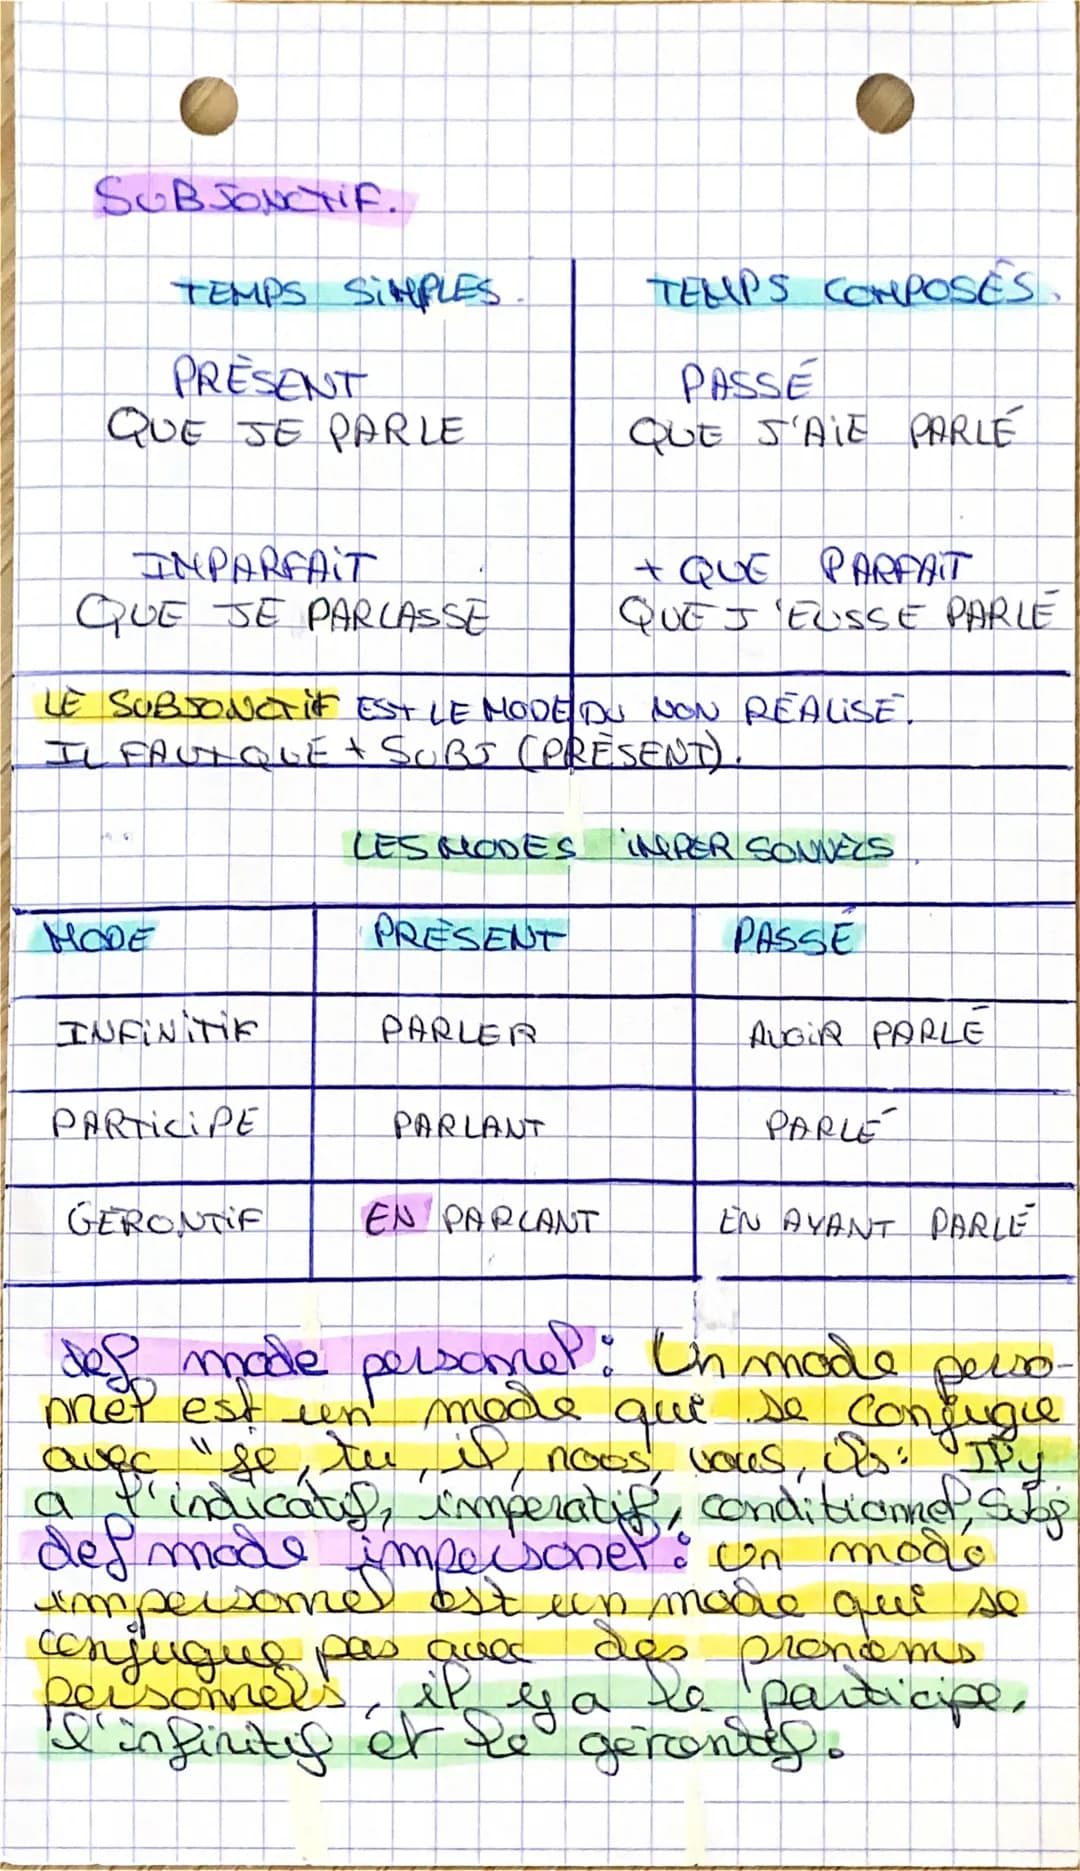 SUBJONCTIF.
TEMPS SIMPLES. TEMPS COMPOSÉS.
PRÉSENT PASSÉ
QUE JE PARLE QUE J'AIE PARLÉ
IMPARFAIT + QUE PARFAIT
QUE JE PARLASSE QUE J'EUSSE PARLÉ
LE SUBJONCTIF EST LE MODE DU NON RÉALISÉ.
IL FAUT QUE + SUBJ (PRÉSENT).
LES MODES IMPERSONNELS.
MODE PRÉSENT PASSÉ
INFINITIF PARLER AVOIR PARLÉ
PARTICIPE PARLANT PARLÉ
GÉRONTIF EN PARLANT EN AYANT PARLÉ
def mode personel : Un mode perso-
nnel est un mode qui se conjugue
avec "je, tu, il, nous, vous, ils : Il y
a l'indicatif, impératif, conditionnel, Subj
def mode impersonel : un mode
impersonnel est un mode qui se
conjugue pas avec des pronoms
personnels, il y a le participe,
l'infinitif et le gérontif.